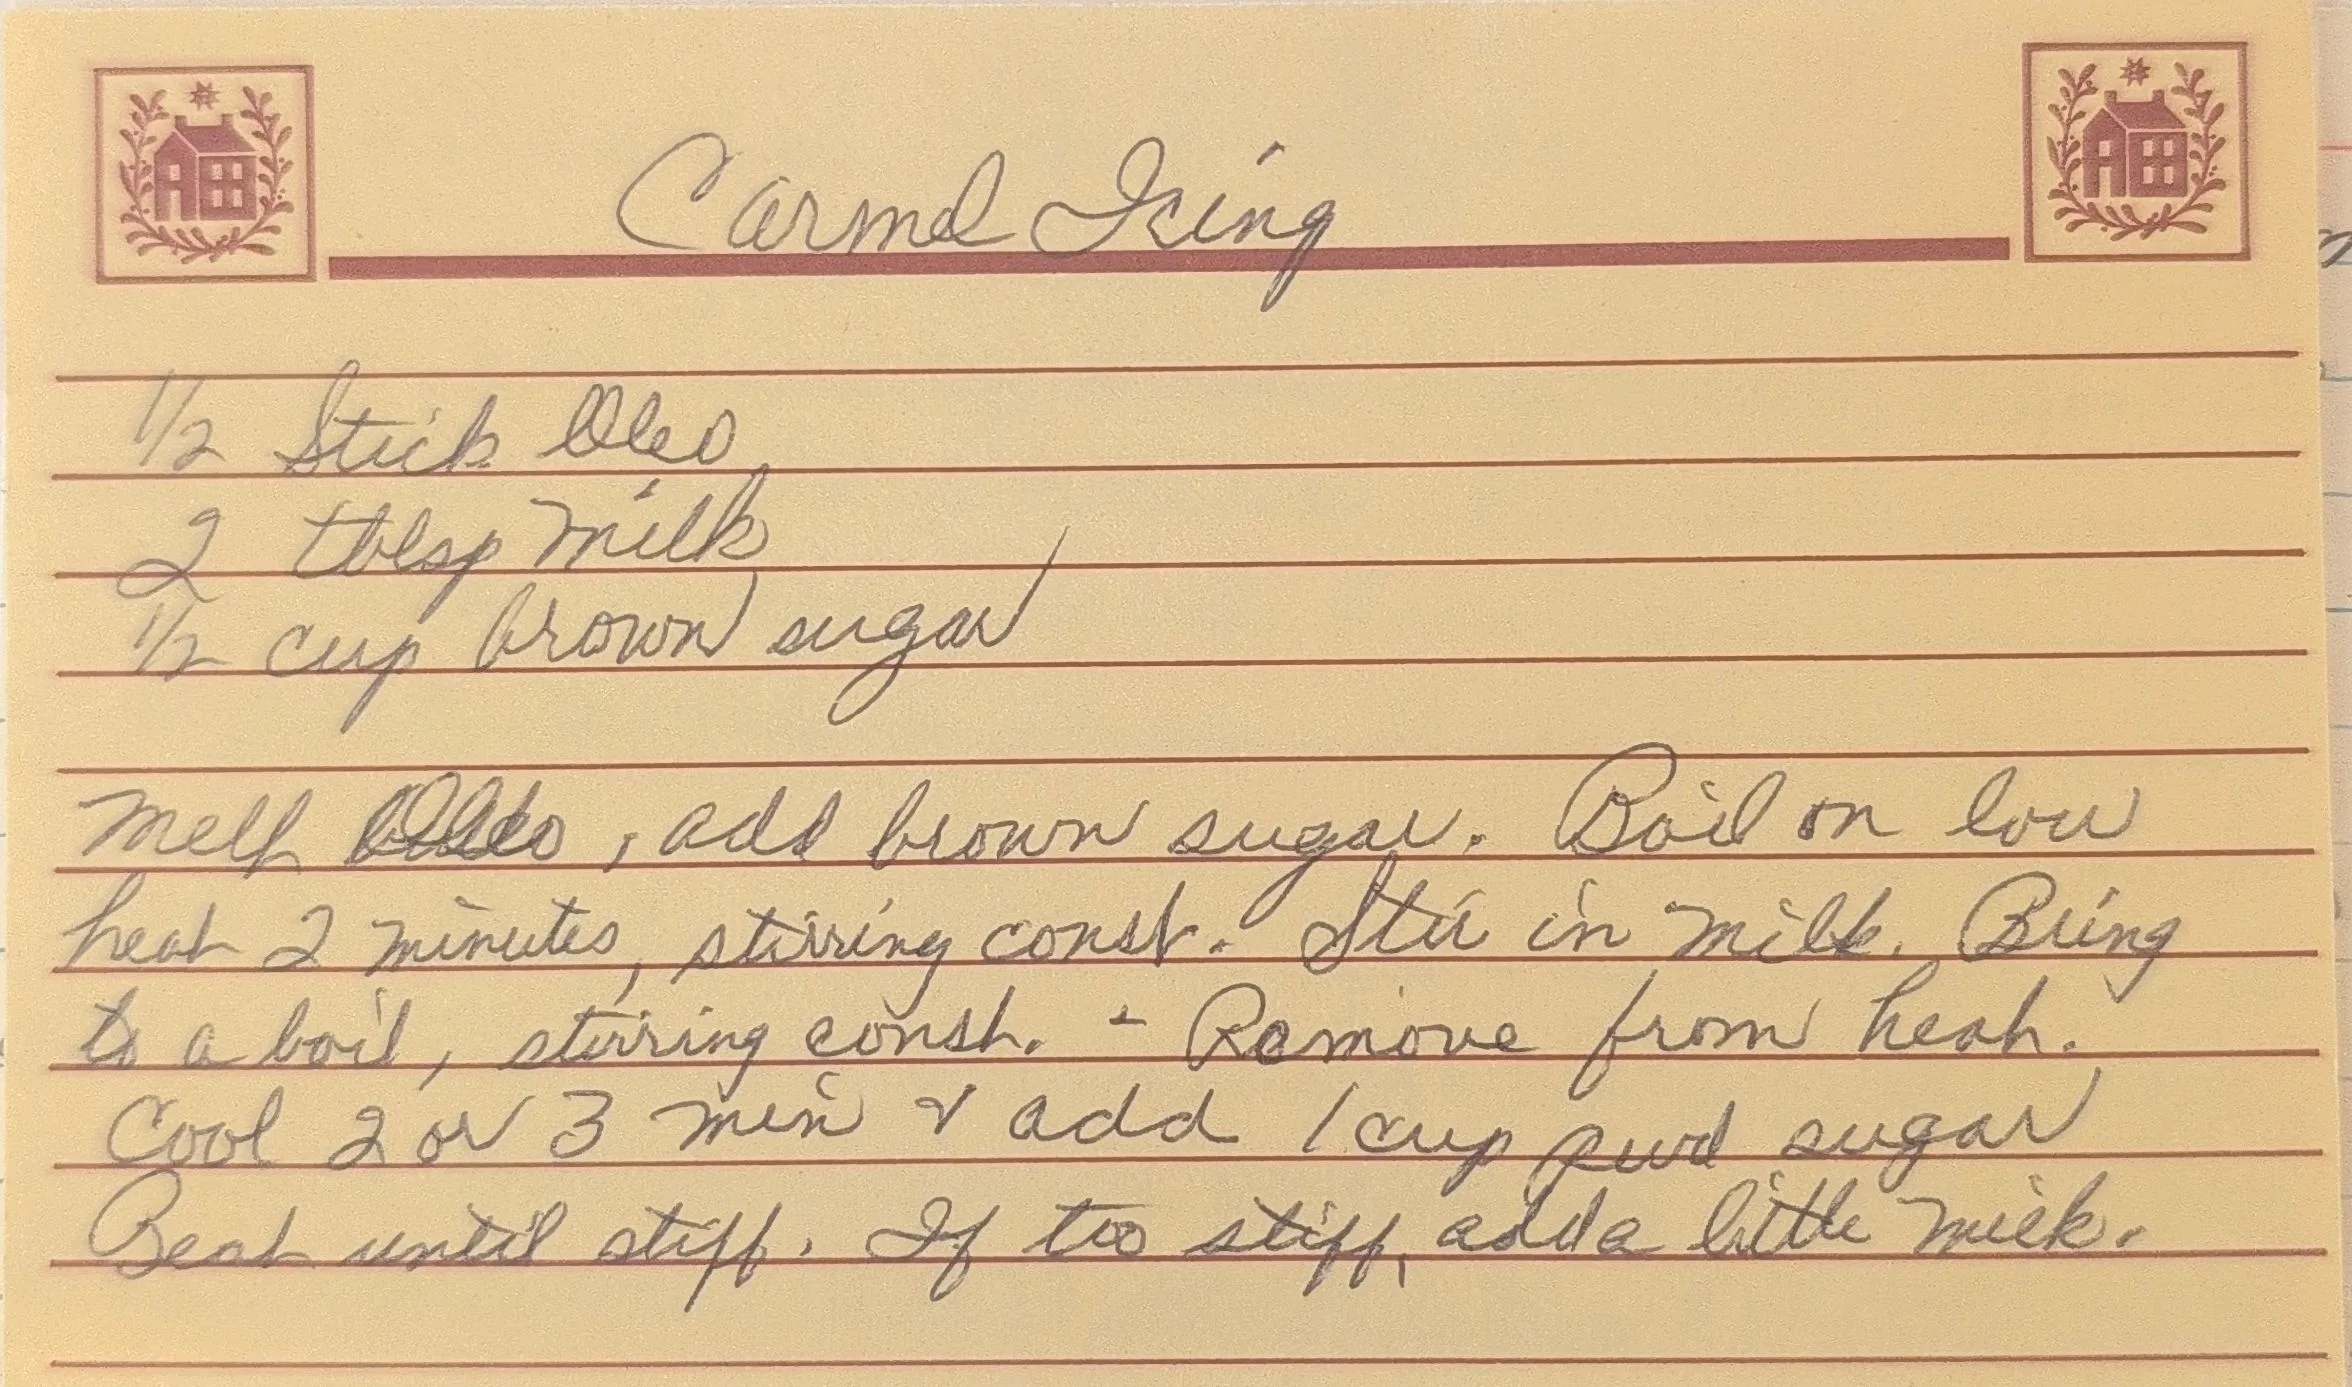 Carmel Icing
1/2 Stick Oleo
2 tblsp milk
1/2 cup brown sugar
Melt Oleo, add brown sugar. Boil on low
heat 2 minutes, stirring const. Stir in milk. Bring
to a boil, stirring const. - Remove from heat.
Cool 2 or 3 min & add 1 cup pwd sugar
Beat until stiff. If too stiff, add a little milk.